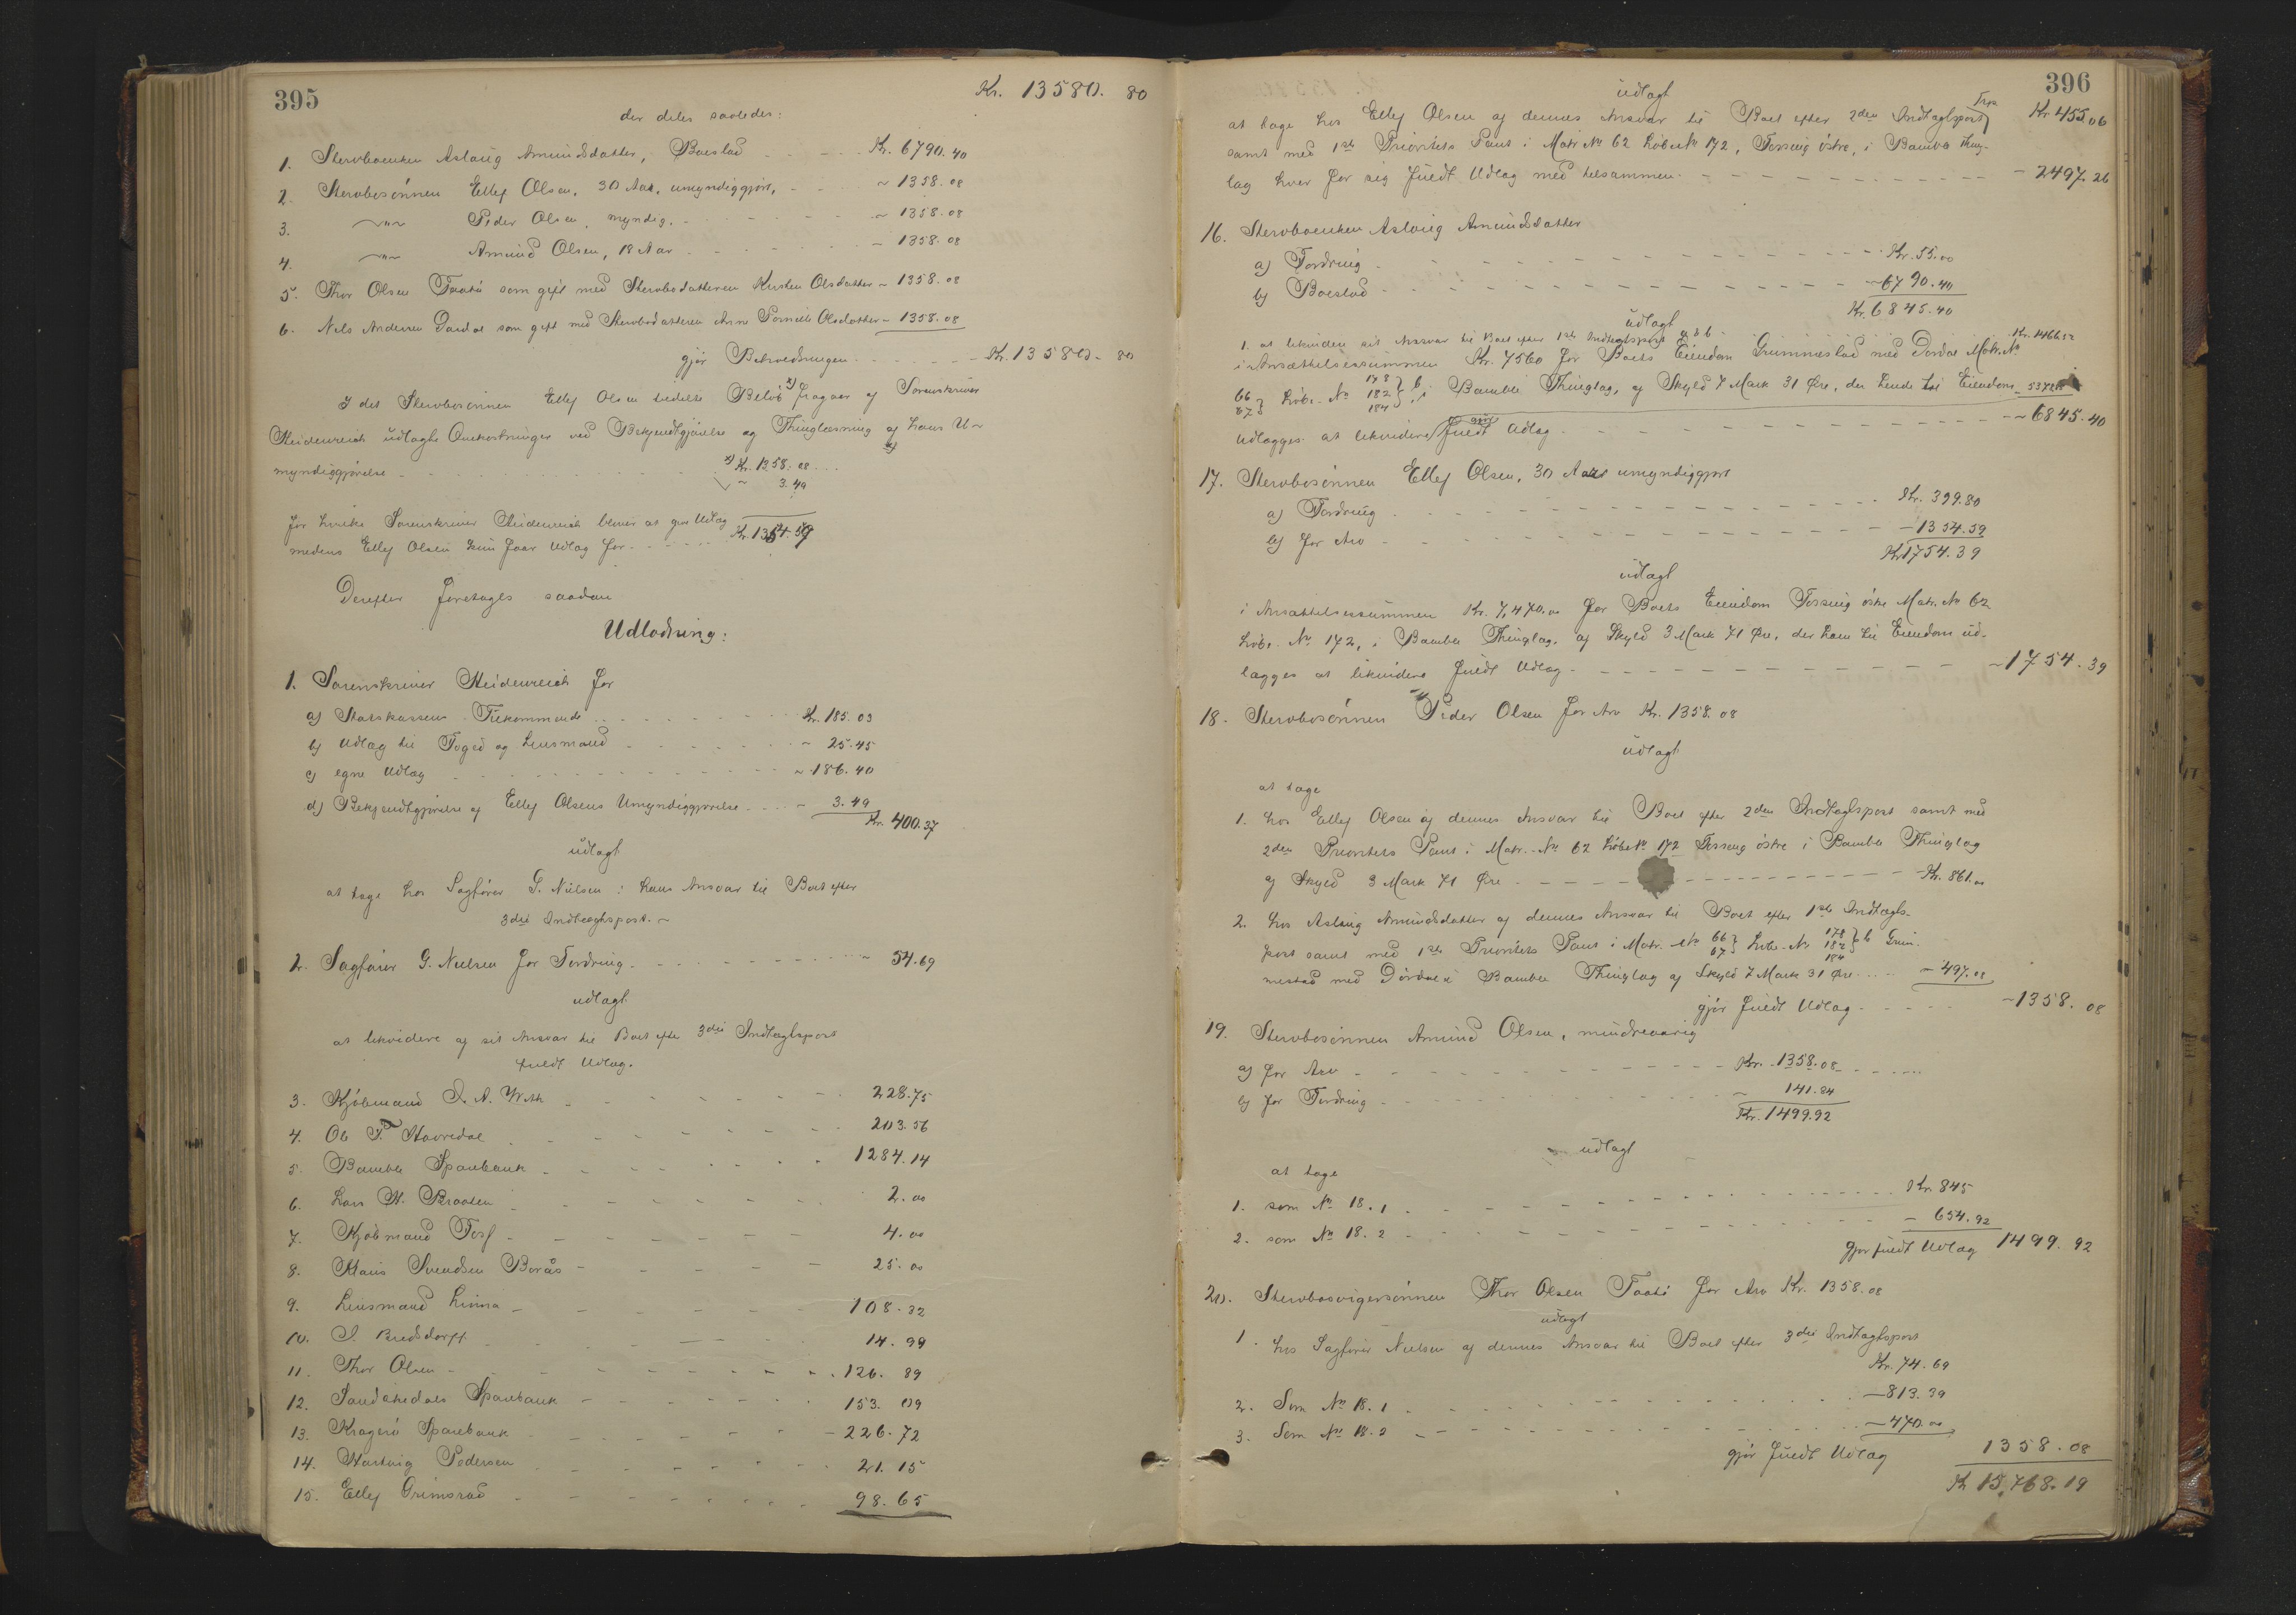 395
Kr. 13580. 80
der deles saaledes:
1. Stervboenken Aslaug Amundsdatter, Boeslod - - - Kr. 6790.40
2. Stervbosønnen Ellef Olsen, 30 Aar, umyndiggjort, - ~ 1358.08
3. ~"~ Peder Olsen, myndig. - - - - ~ 1358.08
4. ~"~ Amund Olsen, 18 Aar - - - - - 1358.08
5. Thor Olsen Taatø som gift med Stervbodatteren Kirsten Olsdatter ~ 1358.08
6. Nils Andersen Dørdal som gift med Stervbodatteren Anne Pernille Olsdatter - 1358.08
gjør Beholdningen - - - - Kr. 13580. 80
I det Stervbosønnen Ellef Olsen tildelte Beløb x) fragaar af Sorenskriver
Heidenreich udlagte Omkostninger ved Bekjendtgjørelse og Thinglæsning af hans U-
myndiggjørelse - - - x) Kr. 1358.08
~ 3.49
for hvilke Sorenskriver Heidenreich bliver at give Udlæg
medens Ellef Olsen kun faar Udlæg for - - - Kr. 1354.59
Derefter foretages saadan
Udlodning:
1. Sorenskriver Heidenreich for
a) Statskassens Tilkommende - - - Kr. 185.03
b) Udlæg til Foged og Lensmand - - - ~ 25.45
c) egne Udlæg - - - ~ 186.40
d) Bekjendtgjørelse af Ellef Olsens Umyndiggjørelse - - - ~ 3.49
Kr. 400.37
udlagt
at tage hos Sagfører G. Nielsen i hans Ansvar til Boet efter
3die Indtægtspost. ~
2. Sagfører G. Nielsen for Fordring - - - ~ 54.69
udlagt
at likvidere af sit Ansvar til Boet efter 3die Indtægtspost
fuldt Udlæg.
3. Kjøbmand I. A. Wth - - - 228.75
4. Ole T. Hovredal - - - 203.56
5. Bamble Sparebank - - - 1284.14
6. Lars H. Braaten - - - 2.00
7. Kjøbmand Fosf - - - 4.00
8. Klaus Svendsen Borås - - - 25.00
9. Lensmand Linna - - - 108.32
10. I. Bredsdorff - - - 14.99
11. Thor Olsen - - - 126.89
12. Sandøkedals Sparebank - - - 153.09
13. Kragerø Sparebank - - - 226.72
14. Hartvig Pedersen - - - 21.15
15. Ellef Grimsrød - - - 98.65
396
udlagt
at tage hos Ellef Olsen af dennes Ansvar til Boet efter 2den Indtægtspost Trsp. Kr 455.06
samt med 1ste Prioritets Pant i Matr No 62 LøbeNo 172, Fossing østre, i Bamble Thing-
lag hver for sig fuldt Udlæg med tilsammen - - - 2497.26
16. Stervboenken Aslaug Amundsdatter
a) Fordring - - - Kr. 55.00
b) Boeslod - - - ~ 6790.40
Kr. 6845.40
udlagt
1. at likvidere sit Ansvar til Boet efter 1ste Indtægtspost a & b - - - Kr. 1466.32
i Ansættelsessummen Kr. 7560 for Boets Eiendom Grummestad med Dørdal Matr. No
66 67 } Løbe-No 178 182 184 } b, i Bamble Thinglag, af Skyld 7 Mark 31 Øre, der hende til Eiendom - 5378
udlægges at likvidere gjør fuldt Udlæg - - - ~ 6845.40
17. Stervbosønnen Ellef Olsen, 30 Aar umyndiggjort
a) Fordring - - - Kr. 399.80
b) for Arv - - - ~ 1354.59
Kr 1754.39
udlagt
i Ansættelsessummen Kr. 7,470.00 for Boets Eiendom Fossing østre Matr. No 62
Løbe-No 172, i Bamble Thinglag, af Skyld 3 Mark 71 Øre, der ham til Eiendom ud-
lægges at likvidere fuldt Udlæg - - - ~ 1754.39
18. Stervbosønnen Peder Olsen for Arv Kr. 1358.08
udlagt
at tage
1. hos Ellef Olsen af dennes Ansvar til Boet efter 2den Indtægtspost samt med
2den Prioritets Pant i Matr.-No 62 LøbeNo 172 Fossing østre i Bamble Thinglag
af Skyld 3 Mark 71 Øre - - - Kr. 861.00
2. hos Aslaug Amundsdatter af dennes Ansvar til Boet efter 1ste Indtægts-
post samt med 1ste Prioritets Pant i Matr. No 66 67 } Løbe-No 178 182 184 } b Grum-
mestad med Dørdal i Bamble Thinglag af Skyld 7 Mark 31 Øre - - - 497.08
gjør fuldt Udlæg - - - ~ 1358.08
19. Stervbosønnen Amund Olsen, mindreaarig
a) for Arv - - - Kr. 1358.08
b) for Fordring - - - ~ 141.84
Kr. 1499.92
udlagt
at tage
1. som No 18.1 - - - Kr. 845
2. som No 18.2 - - - ~ 654.92
gjør fuldt Udlæg 1499.92
20. Stervbosvigersønnen Thor Olsen Taatø for Arv Kr. 1358.08
udlagt
1. hos Sagfører Nielsen af dennes Ansvar til Boet efter 3die Indtægtspost
Kr. 74.69
2. Som No 18.1 - - - ~ 813.39
3. Som No 18.2 - - - ~ 470.00
gjør fuldt Udlæg 1358.08
Kr 15,768.19